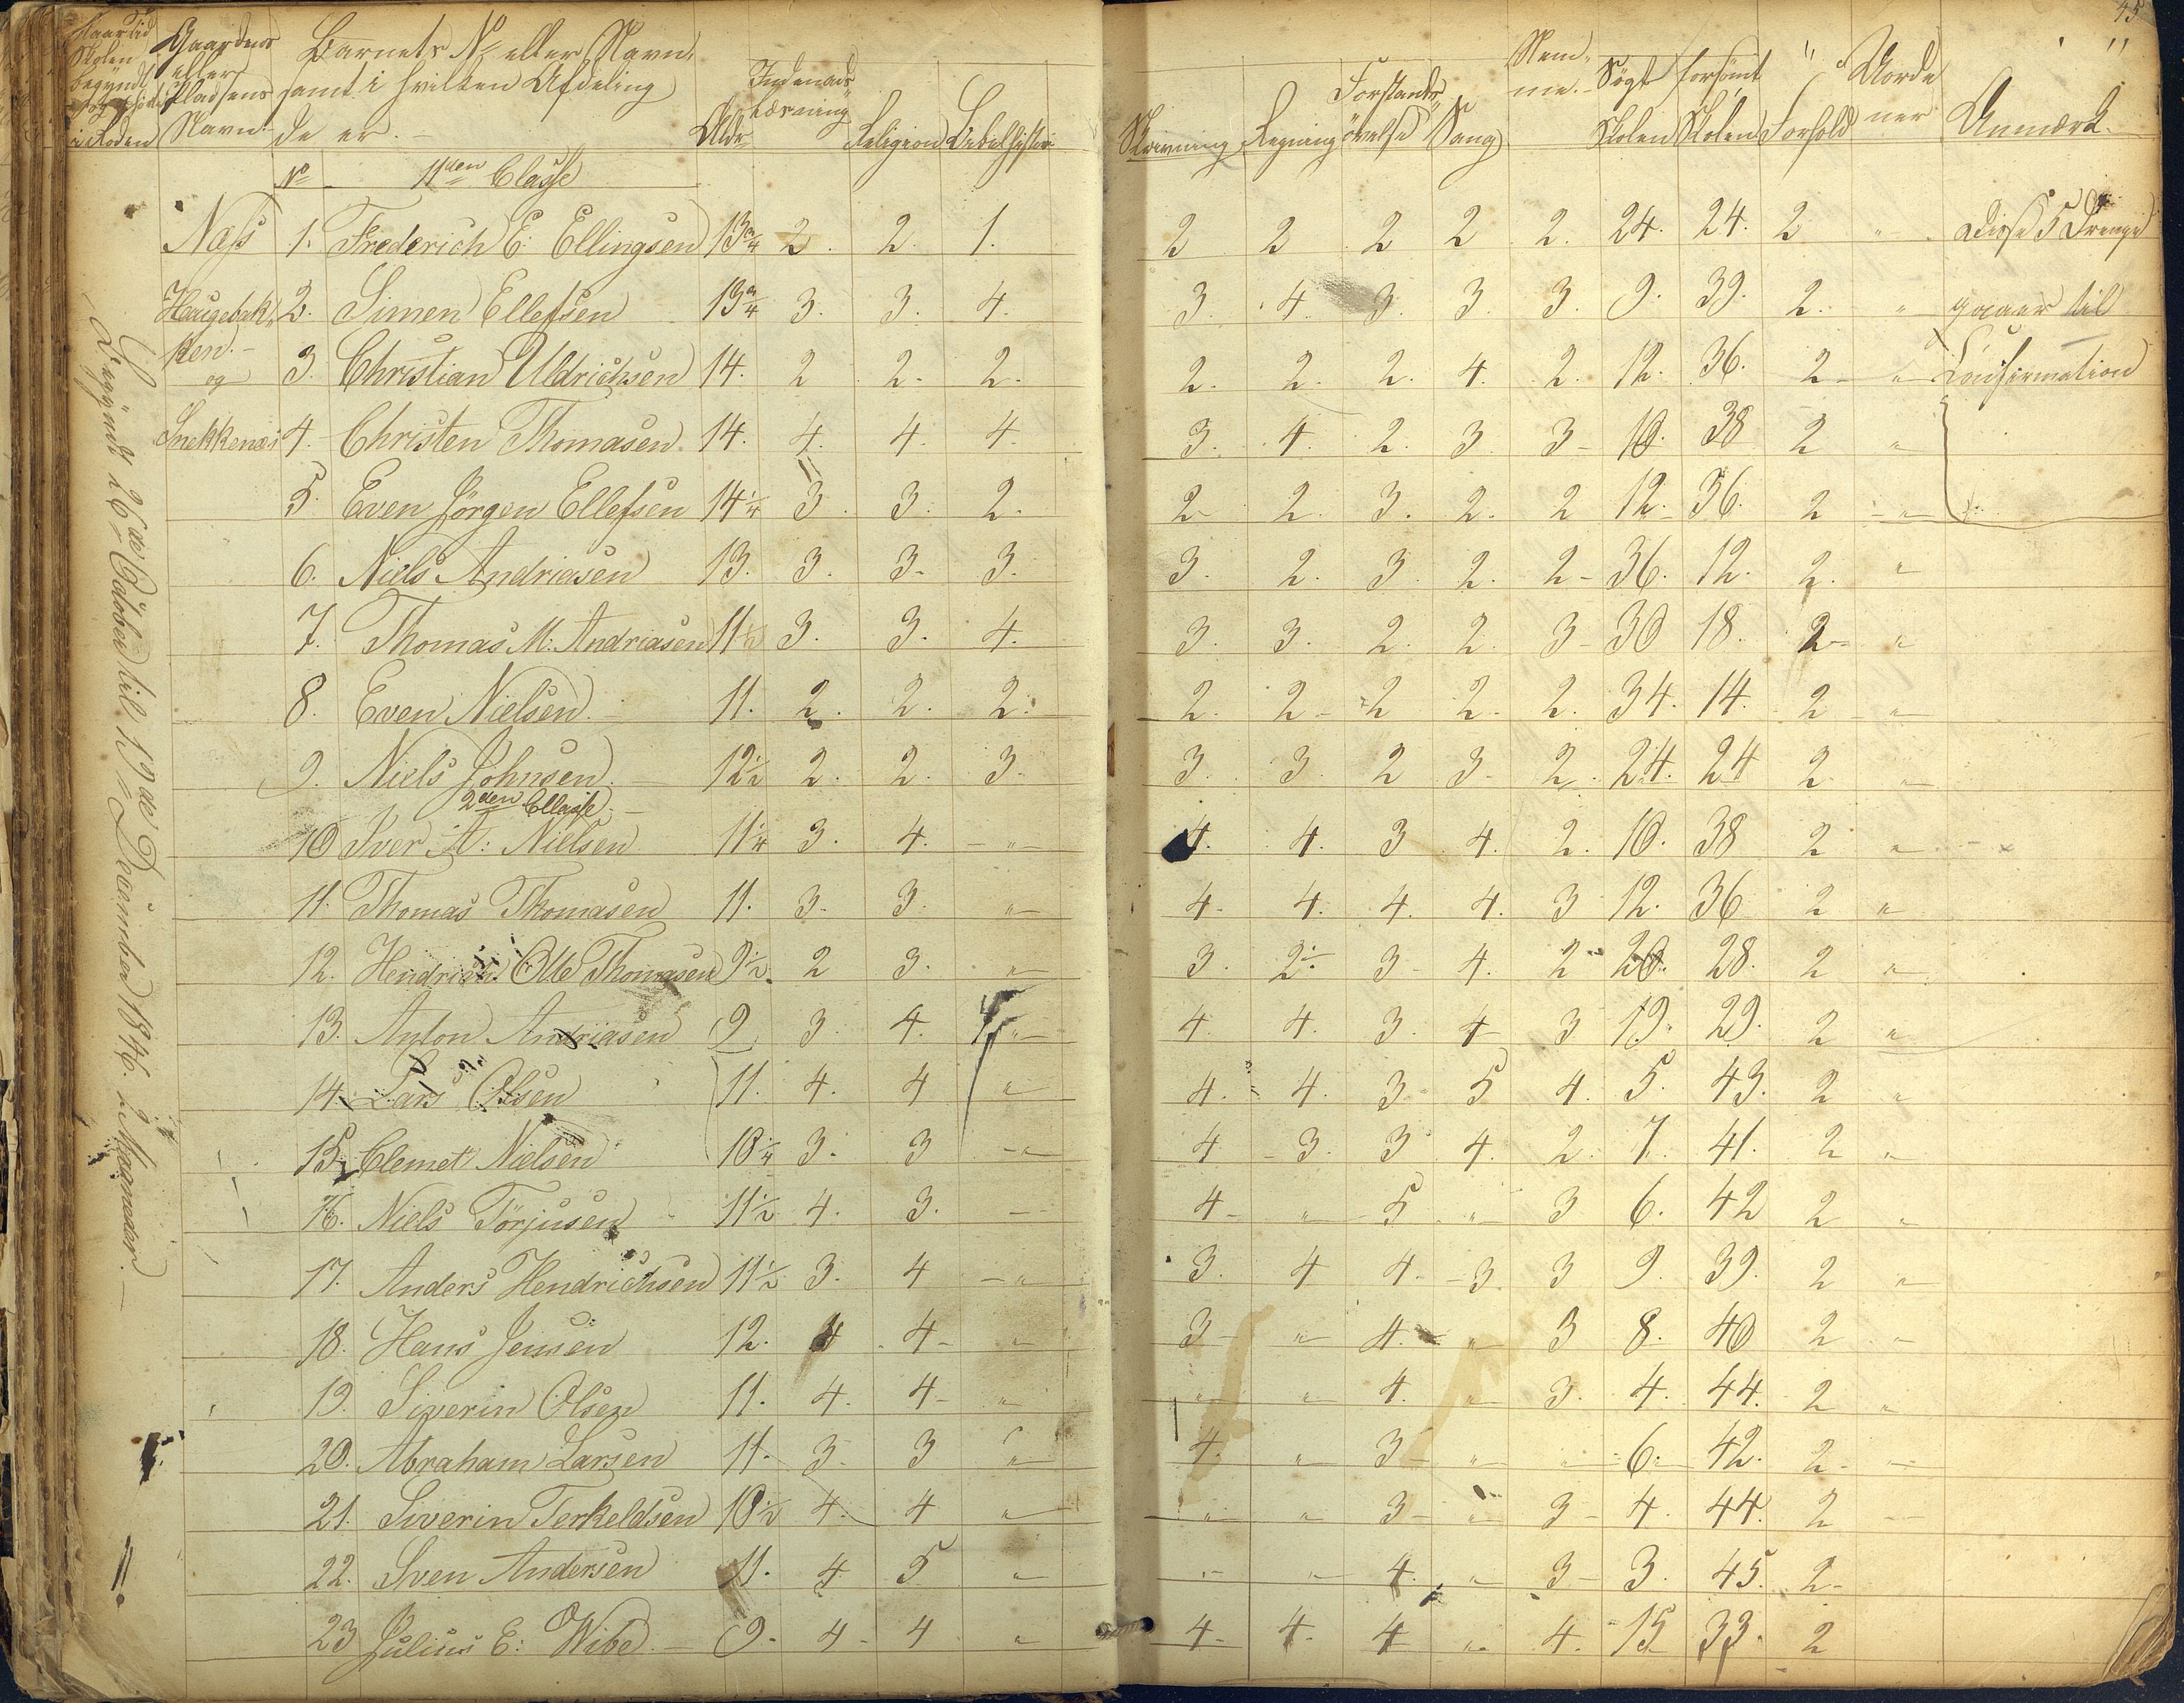 45
Naar tid Skolen begyndt i Roden
Gaardens eller Pladsens Navn.
Barnets No eller Navn, samt i hvilken Afdeling de er. -
Aldr
Indenads læsning
Religion
Bibelhistorie
Skrivning
Regning
Forstands øvelse
Sang
Nemme.
Søgt Skolen
forsømt Skolen
Forhold
Uordener
Anmærk.
No 11den Classe
Næss 1. Frederich E. Ellingsen 13 3/4 2. 2. 1. 2 2 2 2 2. 24. 24. 2 " Disse 5 Drenge
Haugebak- 2. Simen Ellefsen 13 3/4 3. 3. 4. 3. 4. 3. 3. 3. 9. 39. 2. " gaaer til
ken. - og 3. Christian Uldrichsen 14. 2 2. 2. 2. 2. 2. 4. 2. 12. 36. 2 " Confirmation
Snekkenæs 4. Christen Thomasen 14. 4. 4. 4. 3. 4. 2. 3 3 - 10. 38 2 "
5. Even Jørgen Ellefsen 14 1/4 3. 3. 2. 2 2. 3. 2. 2 12. 36. 2 "
6. Niels Andriasen 13. 3. 3 - 3. 3. 2. 3. 2. 2 - 36. 12. 2. "
7. Thomas M: Andriasen 11 1/2 3. 3. 4. 3. 3. 2. 2. 3 - 30 18. 2 - "
8. Even Nielsen. 11. 2. 2. 2. 2. 2 - 2 2. 2. 34. 14. 2 "
9. Niels Johnsen. 12 1/2 2. 2. 3. 3. 3. 2 3 - 2. 24. 24 2 "
2den Classe. -
10 Iver A: Nielsen 11 1/4 3. 4. " 4. 4. 3 4. 2. 10. 38 2 "
11. Thomas Thomasen 11. 3. 3. " 4. 4. 4. 4. 3 12. 36 2 "
12. Hendrich Olle Thomasen 9 1/2. 2 3. " 3. 2 - 3 - 4. 2 20. 28. 2 "
13. Anton Andriasen 9 3. 4. " 4. 4. 3. 4 3 19. 29. 2 "
14. Lars Olsen 11. 4. 4 " 4. 4. 3 5 4. 5. 43. 2 "
15. Clemet Nielsen 10 1/4 3. 3 " 4 3. 3 4. 2. 7. 41. 2 "
16. Niels Törjusen 11 1/2 4. 3. - 4 - " 5 " 3 6. 42 2 "
17. Anders Hendrichsen 11 1/2 3. 4 " 3. 4 4. 3. 3 9. 39. 2 "
18. Hans Jensen 12. 4 4 - " 3 - " 4. " 3 8. 40 2 "
19. Siverin Olsen 11. 4. 4 - " " " 4. " 3. 4. 44. 2 "
20. Abraham Larsen 11. 3. 3 " 4. " 3 " " 6. 42. 2. -
21. Siverin Terkeldsen 10 1/2 4. 4 " " " 3 - " 3 - 4. 44. 2 -
22. Sven Andersen 11. 4 5 " " " 4. " 3 - 3. 45. 2 -
23 Julius E: Wibe. - 9. 4 - 4 " 4 - 4. 4 " 4. 15 33. 2
Begyndt 26de October til 19de December 1846. 2 Maaneder. -